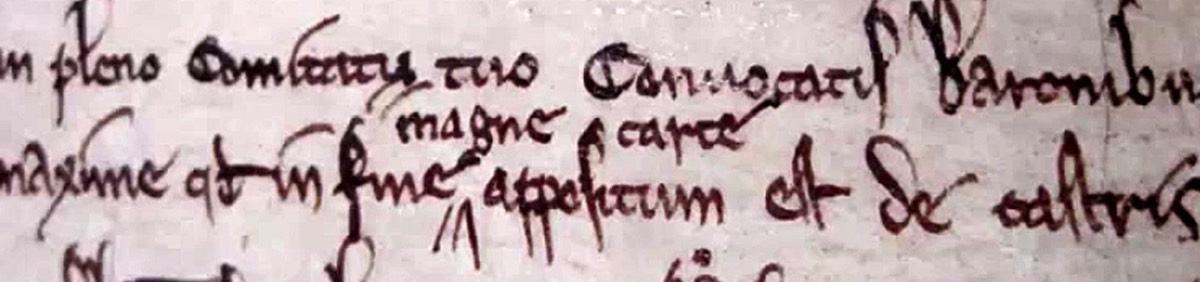 in pleno Comitatu tuo Conuocatis Baronibu
magne carte
maxime qd in fine appositum est de castris